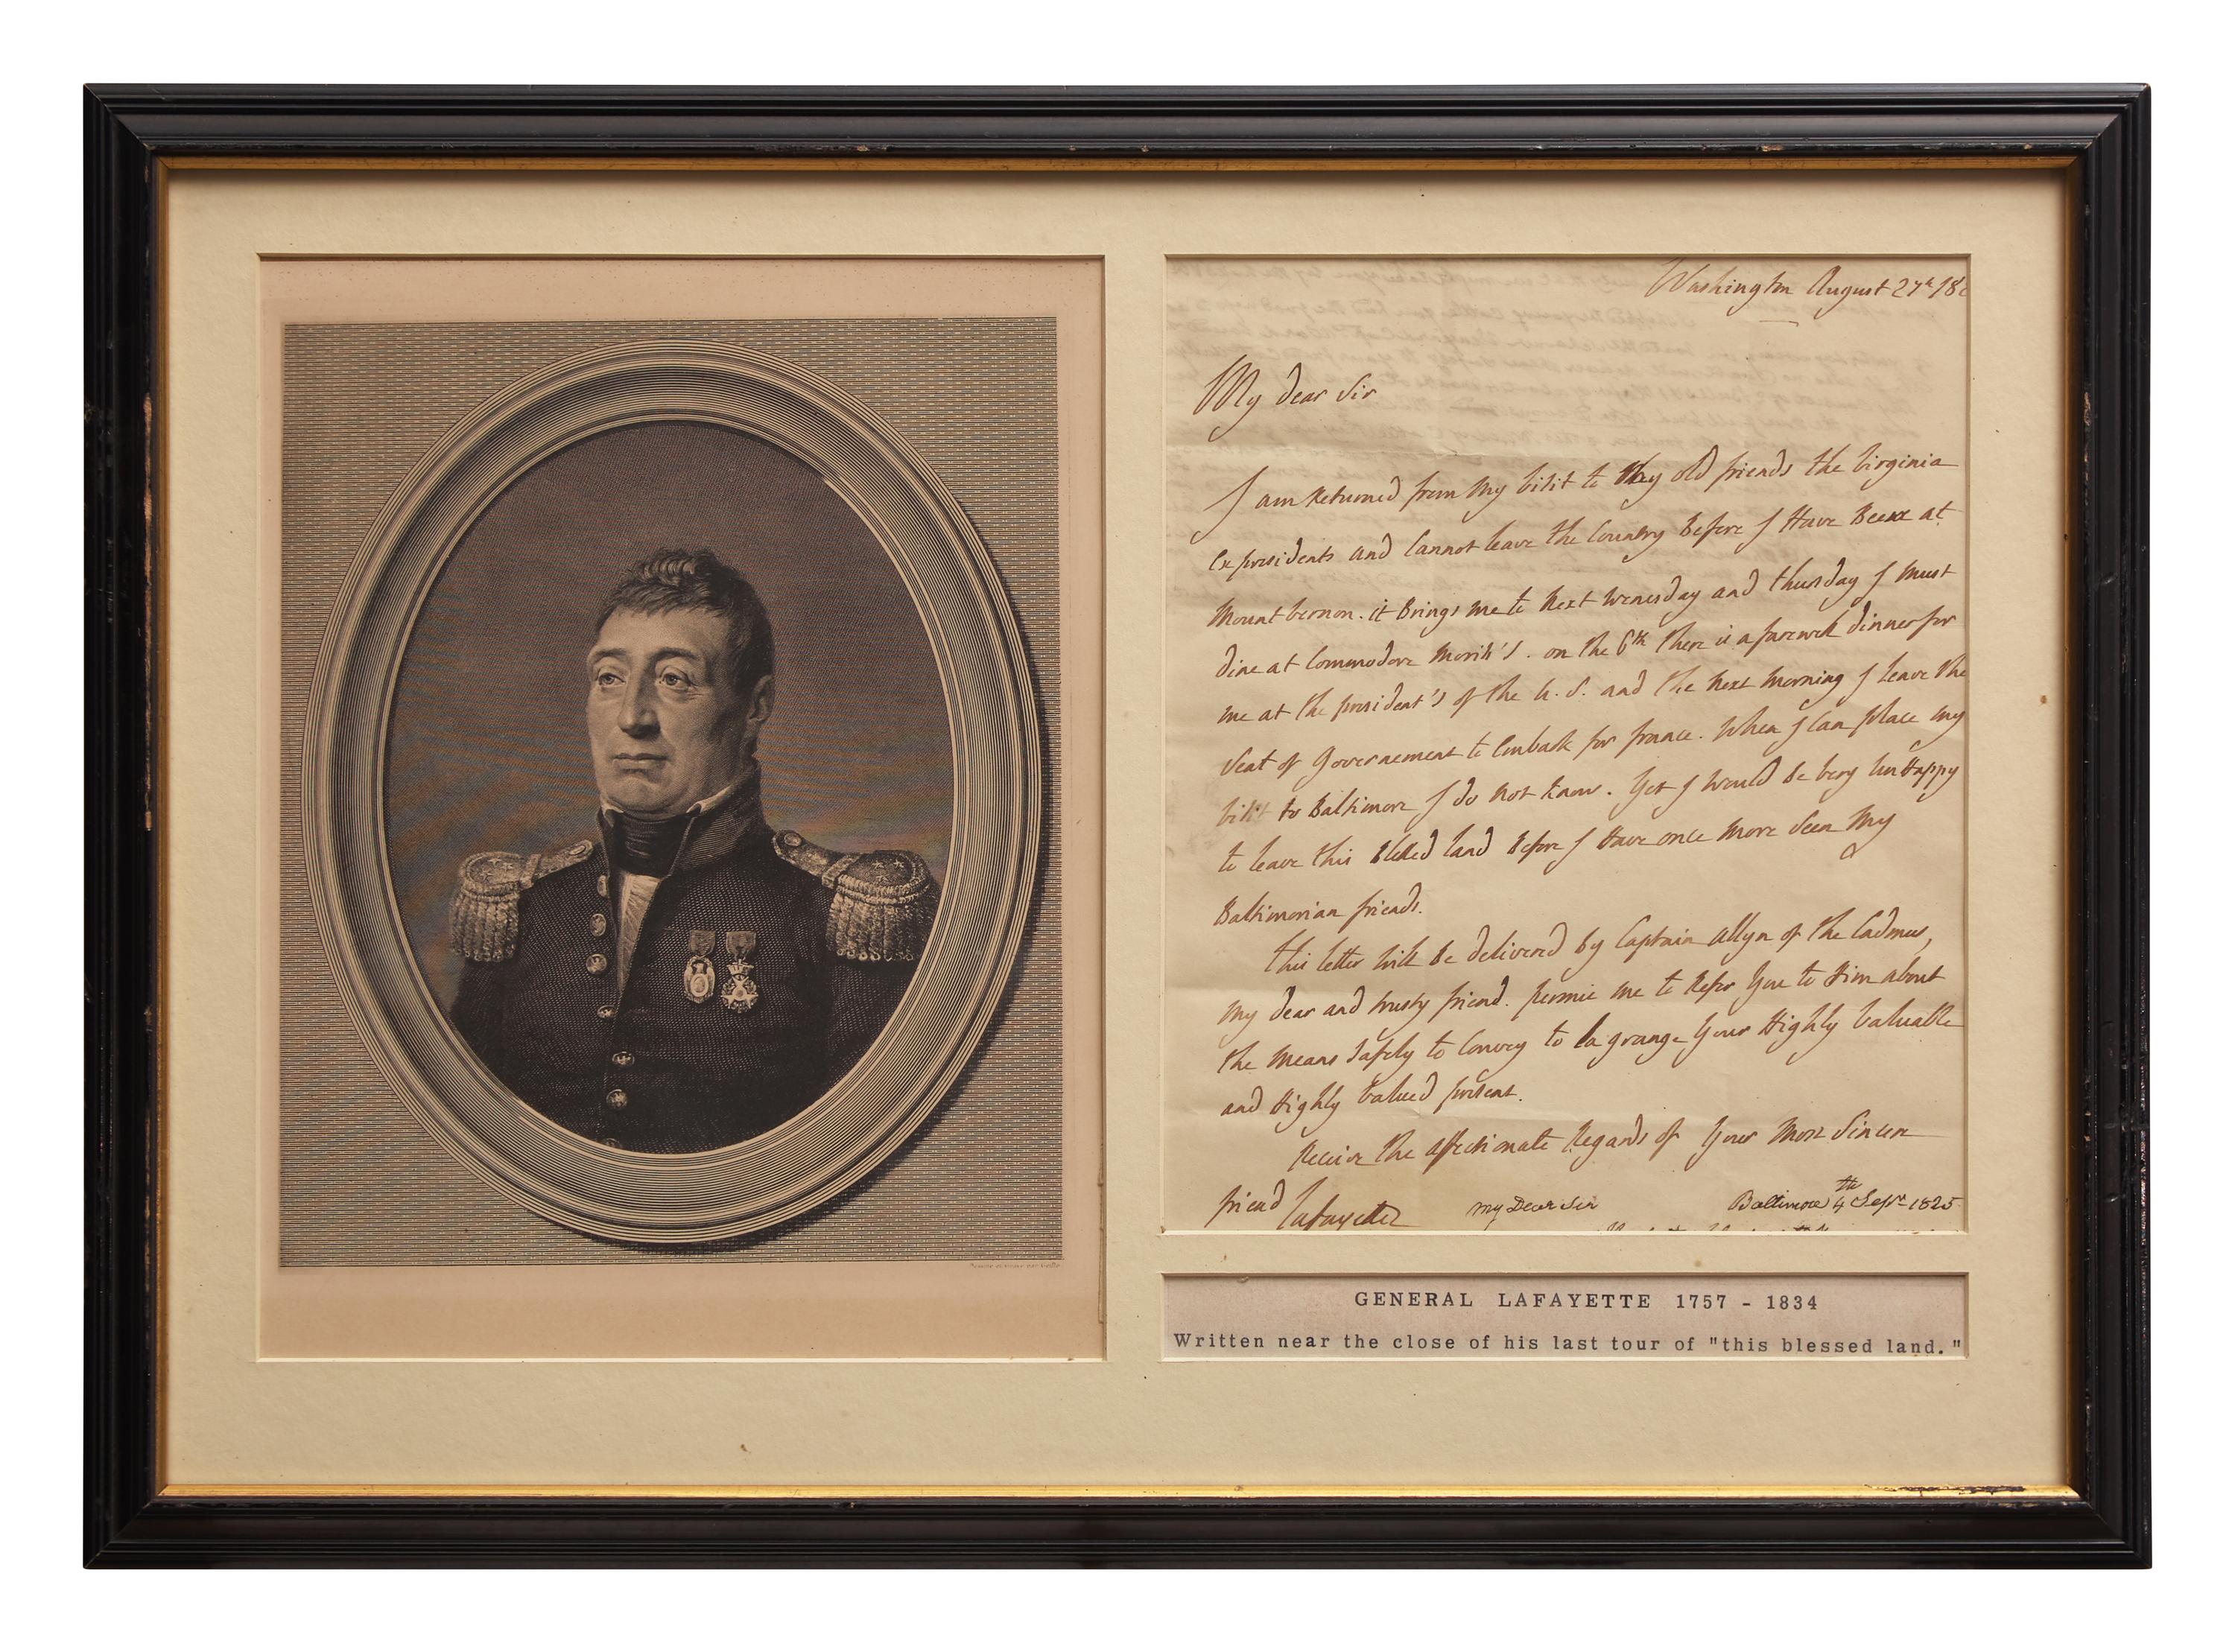 Washington August 27th 18
My dear Sir
I am Returned from My visit to My old friends the virginia
Ex presidents and Cannot leave the Country Before I Have Been at
Mount vernon. it Brings me to Next Wenesday and thursday I Must
dine at Commodore Morris's. on the 6th there is a farewell dinner for
me at the president's of the U. S. and the Next Morning I Leave the
Seat of Governement to Embark for france. When I Can place my
visit to Baltimore I do Not Know. Yet I Would Be very UnHappy
to leave this Blessed land Before I Have once More Seen My
Baltimorian friends.
this letter will Be delivered by Captain allyn of the Cadmus,
My dear and trusty friend. permit me to Refer You to Him about
the Means Safely to Convey to La grange Your Highly Valuable
and Highly Valued present.
Receive the affectionate Regards of Your Most Sincere
friend Lafayette
my Dear Sir Baltimore 4th Sepr 1825
GENERAL LAFAYETTE 1757 - 1834
Written near the close of his last tour of "this blessed land."